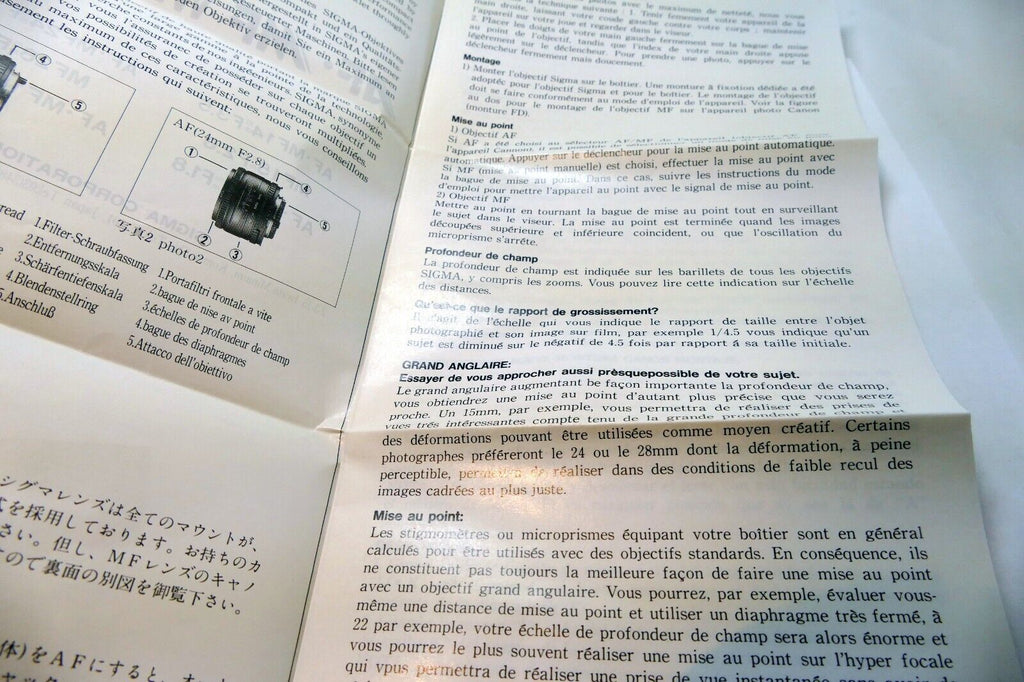 ompakt und
esteuerter SIGMA Objektive
isungen, damit Sie ein Maximum an
uen Objektiv erzielen.
l'assurance de posséder un objectif
vos possibilités créatrices. Chaque objectif
maximum de ces caractéristiques, nous vous conseillons
les instructions qui suivent:
④
⑤
AF(24mm F2.8)
①
④
⑤
②
③
写真2 photo2
read
1.Filter-Schraubfassung
2.Entfernungsskala
3.Schärfentiefenskala
4.Blendenstellring
5.Anschluß
1.Portafiltri frontale a vite
2.bague de nise av point
3.échelles de profondeur de champ
4.bague des diaphragmes
5.Attacco dell'obiettivo
シグマレンズは全てのマウントが、
を採用しております。お持ちのカ
さい。但し、MFレンズのキャノ
ので裏面の別図を御覧下さい。
体)をAFにすると、オ
photos avec le maximum de netteté, nous vous
la technique suivante: 1. Tenir fermement votre appareil de la
main droite, laissant votre coude gauche contre votre corps; maintenir
l'appareil sur votre joue et regarder dans le viseur.
2. Placer les doigts de votre main gauche fermement sur la bague de mise
au point de l'objectif, tandis que l'index de votre main droite appuie
légèrement sur le déclencheur. Pour prendre une photo, appuyer sur le
déclencheur fermement mais doucement.
Montage
1) Monter l'objectif Sigma sur le boîtier. Une monture à fixation dédiée a été
adoptée pour l'objectif Sigma et pour le boîtier. Le montage de l'objectif
doit se faire conformément au mode d'emploi de l'appareil. Voir la figure
au dos pour le montage de l'objectif MF sur l'appareil photo Canon
(monture FD).
Mise au point
1) Objectif AF
Si AF a été choisi au sélecteur AF/MF de l'appareil
automatique. Appuyer sur le déclencheur pour la mise au point automatique.
Si MF (mise au point manuelle) est choisi, effectuer la mise au point avec
la bague de mise au point. Dans ce cas, suivre les instructions du mode
d'emploi pour mettre l'appareil au point avec le signal de mise au point.
2) Objectif MF
Mettre au point en tournant la bague de mise au point tout en surveillant
le sujet dans le viseur. La mise au point est terminée quand les images
découpées supérieure et inférieure coincident, ou que l'oscillation du
microprisme s'arrête.
Profondeur de champ
La profondeur de champ est indiquée sur les barillets de tous les objectifs
SIGMA, y compris les zooms. Vous pouvez lire cette indication sur l'échelle
des distances.
Qu'est-ce que le rapport de grossissement?
Il s'agit de l'échelle qui vous indique le rapport de taille entre l'objet
photographié et son image sur film, par exemple 1/4.5 vous indique qu'un
sujet est diminué sur le négatif de 4.5 fois par rapport á sa taille initiale.
GRAND ANGLAIRE:
Essayer de vous approcher aussi prèsquepossible de votre sujet.
Le grand angulaire augmentant be façon importante la profondeur de champ,
vous obtiendrez une mise au point d'autant plus précise que vous serez
proche. Un 15mm, par exemple, vous permettra de réaliser des prises de
vues trés intéressantes compte tenu de la grande profondeur de champ et
des déformations pouvant être utilisées comme moyen créatif. Certains
photographes préféreront le 24 ou le 28mm dont la déformation, à peine
perceptible, permettra de réaliser dans des conditions de faible recul des
images cadrées au plus juste.
Mise au point:
Les stigmomètres ou microprismes équipant votre boîtier sont en général
calculés pour être utilisés avec des objectifs standards. En conséquence, ils
ne constituent pas toujours la meilleure façon de faire une mise au point
avec un objectif grand angulaire. Vous pourrez, par exemple, évaluer vous-
même une distance de mise au point et utiliser un diaphragme très fermé, à
22 par exemple, votre échelle de profondeur de champ sera alors énorme et
vous pourrez le plus souvent réaliser une mise au point sur l'hyper focale
qui vpus permettra de réaliser une prise de vue instantanée sans avoir